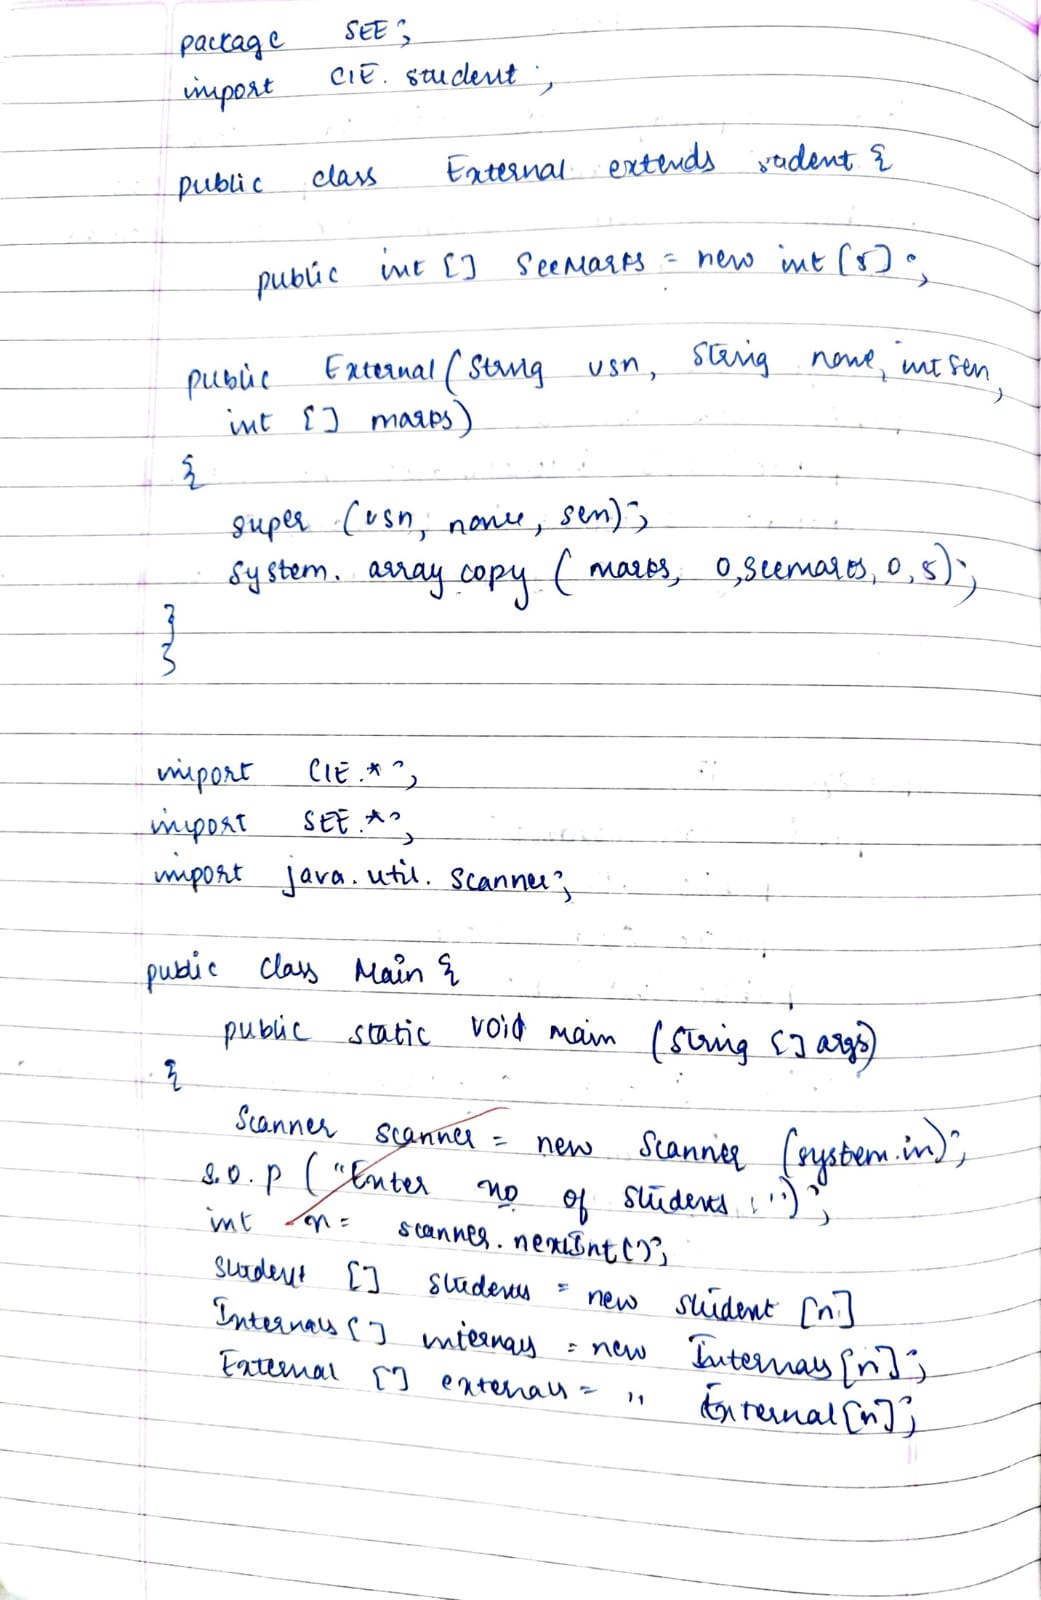 package SEE;
import CIE. student;
public class External extends student {
public int [] SeeMarks = new int [5];
public External (String usn, String name, int sem,
int [] marks)
{
super (usn, name, sem);
system. array copy ( marks, 0, seemarks, 0, 5);
}
}
import CIE.*;
import SEE.*;
import java.util. Scanner;
public class Main {
public static void main (String [] args)
{
Scanner scanner = new Scanner (system.in);
S.O.P ( "Enter no of students : ");
int n = scanner.nextInt();
student [] students = new student [n]
Internals [] internals = new Internals [n];
External [] externals = " External [n];